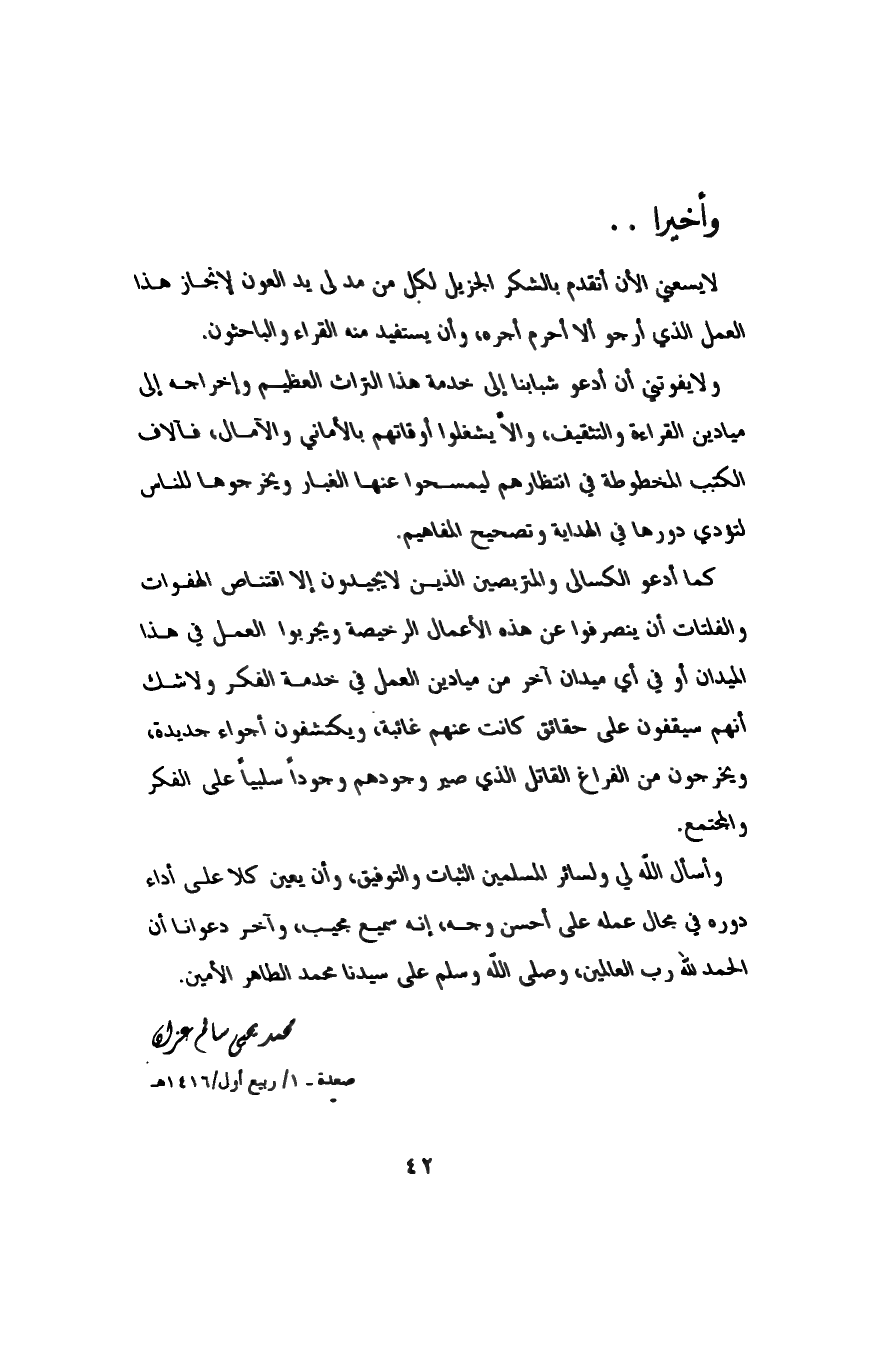 وأخيرا . .
لايسعني الأن أتقدم بالشكر الجزيل لكل من مد لى يد العون لإنجاز هذا
العمل الذي أرجو ألا أحرم أجره، وأن يستفيد منه القراء والباحثون.
ولايفوتني أن أدعو شبابنا إلى خدمة هذا التراث العظيم وإخراجه إلى
ميادين القراءة والتثقيف، والاً يشغلوا أوقاتهم بالأماني والآمال، فآلاف
الكتب المخطوطة في انتظارهم ليمسحوا عنها الغبار ويخرجوها للناس
لتؤدي دورها في الهداية وتصحيح المفاهيم.
كما أدعو الكسالى والمتربصين الذين لايجيدون إلا اقتناص الهفوات
والفلتات أن ينصرفوا عن هذه الأعمال الرخيصة ويجربوا العمل في هذا
الميدان أو في أي ميدان آخر من ميادين العمل في خدمة الفكر ولاشك
أنهم سيقفون على حقائق كانت عنهم غائبة، ويكتشفون أجواء جديدة،
ويخرجون من الفراغ القاتل الذي صير وجودهم وجوداً سلبياً على الفكر
والمجتمع.
وأسأل اللّه لي ولسائر المسلمين الثبات والتوفيق، وأن يعين كلا على أداء
دوره في مجال عمله على أحسن وجه، إنه سميع مجيب، وآخر دعوانا أن
الحمد للّه رب العالمين، وصلى اللّه وسلم على سيدنا محمد الطاهر الأمين.
محمد يحيى سالم عزان
صعدة - ١/ ربيع أول/١٤١٦هـ
٤٢